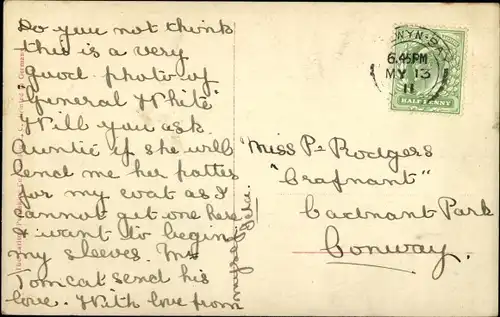 Do you not think
this is a very
good photo of
"General White"
Will you ask
Auntie if she will
lend me her patter
for my coat as I
cannot get one here
I want to begin
my sleeves. Mr
Tomcat send his
love. With love from
WYN-BAY
6.45PM
MY 13
11
HALFPENNY
Miss P. Rodgers
"Crafnant"
Cadnant Park
Conway.